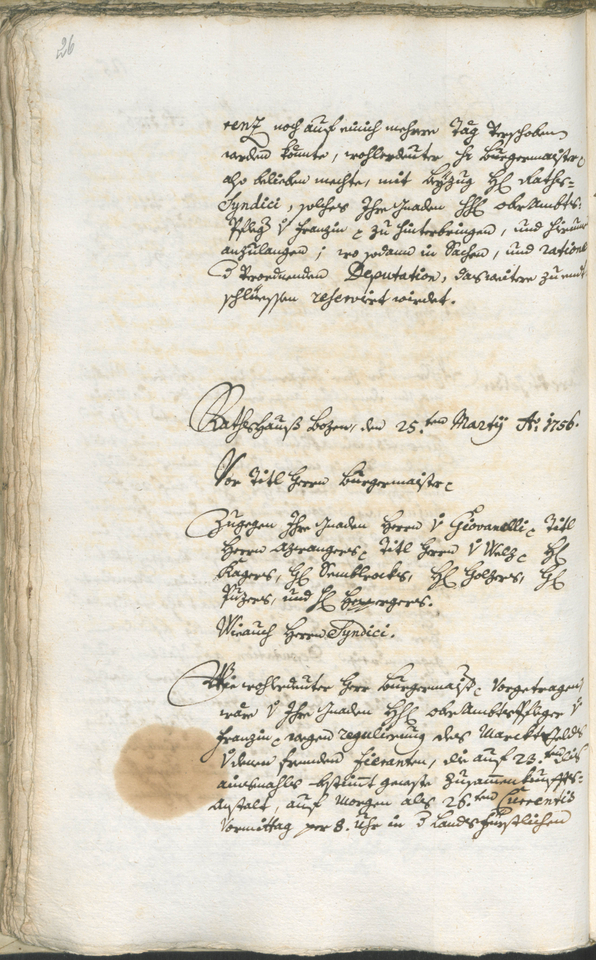 26
renz noch auf einich mehrere Täg verschoben
werden könnte, wohlerdeuter H: Burgermaister
also belieben mechte, mit Beyzug H: Raths-
Syndici, solches Ihro Gnaden H: ober Ambts-
Pfleg v Franzin p: zu hinterbringen, und hierum
anzulangen; wo sodann in Sachen, und ratione
d verordnenden Deputation, das weitere zu ent
schlüessen reservirt wirdet.
Rathshauß Bozen, den 25.ten Martij Ao: 1756.
Vor Titl Herrn Burgermaistr
Zugegen Ihro Gnaden Herrn v Giovanelli, Titl
Herrn Azwangers, Titl Herrn v Welz, H:
Kagers, H: Semblrocks, H: Holzers, H:
und H:
Wie auch Herrn Syndici.
Wie wohlerdeuter Herr Burgermaistr vorgetragen,
wäre v Ihro Gnaden H: ober Ambts Pfleger v
Franzin, wegen regulierung des Marckt-
v denen frembden Fieranten, die auf 23.ten
ainsmahls bestimt geweste Zusammenkunffts-
Anstalt, auf Morgen als 26.ten Currentis
Vormittag per 8. Uhr in d Landsfürstlichen